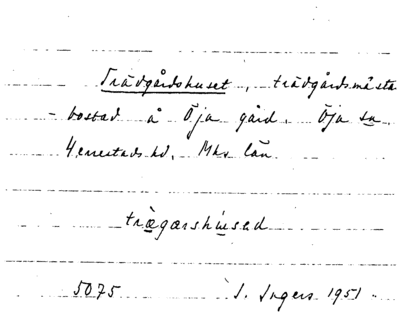 Trädgårdshuset, trädgårdsmästa
- bostad å Öja gård. Öja sn
Herrestads hd. Mhs län
trægarshused
5075 I. Ingers 1951